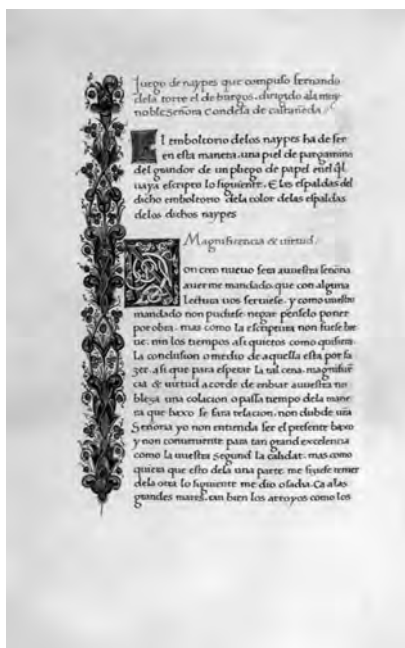 Juego de naypes que compuso fernando
dela torre el de burgos. dirigido ala muy
noble señora condesa de castañeda
El emboltorio delos naypes ha de ser
en esta manera. una piel de pargamino
del grandor de un pliego de papel enel q̃l
uaya escripto lo siguiente. E las espaldas del
dicho emboltorio dela color delas espaldas
delos dichos naypes
Magnificencia & uirtud.
Non creo nueuo sera auuestra señoria
auer me mandado que con alguna
Lectura uos seruiese. y como uuestro
mandado non pudiese negar penselo poner
por obra. mas como la escriptura non fuese bre
ue. nin los tiempos asi quietos como quisiera
la conclusion o medio de aquella esta por fa
zer. asi que para esperar la tal cena. magnifi
cia & uirtud acorde de enbiar auuestra no
bleza una colacion o passa tiempo dela mane
ra que baxo se fara relacion. non dubde uŕa
Señoria yo non entienda ser el presente baxo
y non conueniente para tan grand excelencia
como la uuestra segund la calidat. mas como
quiera que esto dela una parte me fiziese temer
dela otra lo siguiente me dio osadia. Ca alas
grandes mares. tan bien los arroyos como los